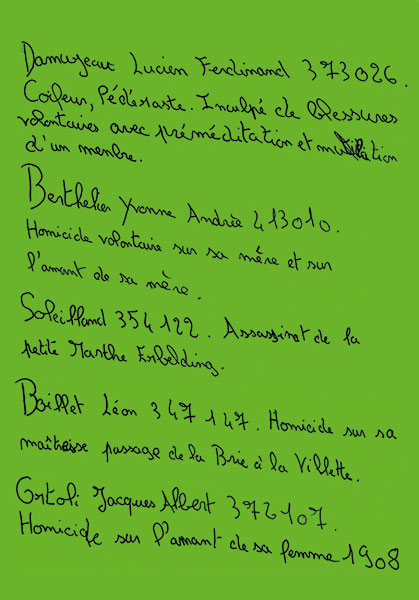 Damuzeaux Lucien Ferdinand 373026.
Coifeur, Pédéraste. Inculpé de blessures
volontaires avec préméditation et mutilation
d'un menbre.
Berthelier Yvonne Andrée 413010.
Homicide volontaire sur sa mère et sur
l'amant de sa mère.
Soleilland 354122. Assassinat de la
petite Marthe Erbelding.
Boillet Léon 347147. Homicide sur sa
maîtresse passage de la Brie à la Villette.
Ortoli Jacques Albert 372107.
Homicide sur l'amant de sa femme 1908